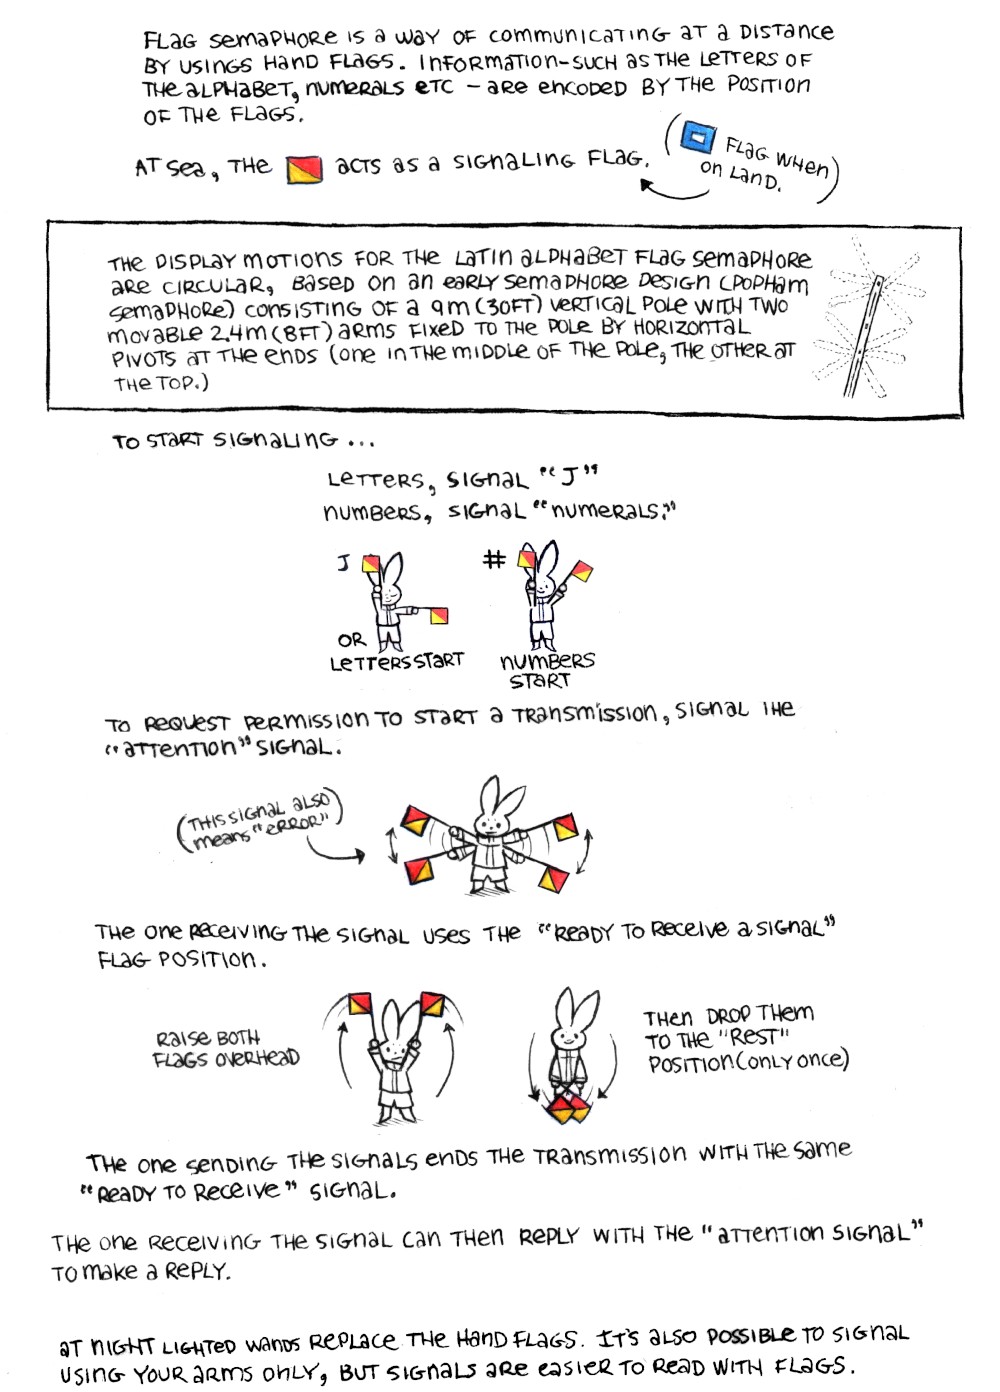 FLAG SEMAPHORE IS A WAY OF COMMUNICATING AT A DISTANCE
BY USINGS HAND FLAGS. INFORMATION-SUCH AS THE LETTERS OF
THE ALPHABET, NUMERALS ETC - ARE ENCODED BY THE POSITION
OF THE FLAGS.
AT SEA, THE ACTS AS A SIGNALING FLAG.
( FLAG WHEN
ON LAND.)
THE DISPLAY MOTIONS FOR THE LATIN ALPHABET FLAG SEMAPHORE
ARE CIRCULAR, BASED ON AN EARLY SEMAPHORE DESIGN (POPHAM
SEMAPHORE) CONSISTING OF A 9M (30FT) VERTICAL POLE WITH TWO
MOVABLE 2.4M (8FT) ARMS FIXED TO THE POLE BY HORIZONTAL
PIVOTS AT THE ENDS (ONE IN THE MIDDLE OF THE POLE, THE OTHER AT
THE TOP.)
TO START SIGNALING ...
LETTERS, SIGNAL "J"
NUMBERS, SIGNAL "NUMERALS."
J
OR
LETTERS START
#
NUMBERS
START
TO REQUEST PERMISSION TO START A TRANSMISSION, SIGNAL THE
"ATTENTION" SIGNAL.
(THIS SIGNAL ALSO
MEANS "ERROR")
THE ONE RECEIVING THE SIGNAL USES THE "READY TO RECEIVE A SIGNAL"
FLAG POSITION.
RAISE BOTH
FLAGS OVERHEAD
THEN DROP THEM
TO THE "REST"
POSITION.(ONLY ONCE)
THE ONE SENDING THE SIGNALS ENDS THE TRANSMISSION WITH THE SAME
"READY TO RECEIVE" SIGNAL.
THE ONE RECEIVING THE SIGNAL CAN THEN REPLY WITH THE "ATTENTION SIGNAL"
TO MAKE A REPLY.
AT NIGHT LIGHTED WANDS REPLACE THE HAND FLAGS. IT'S ALSO POSSIBLE TO SIGNAL
USING YOUR ARMS ONLY, BUT SIGNALS ARE EASIER TO READ WITH FLAGS.